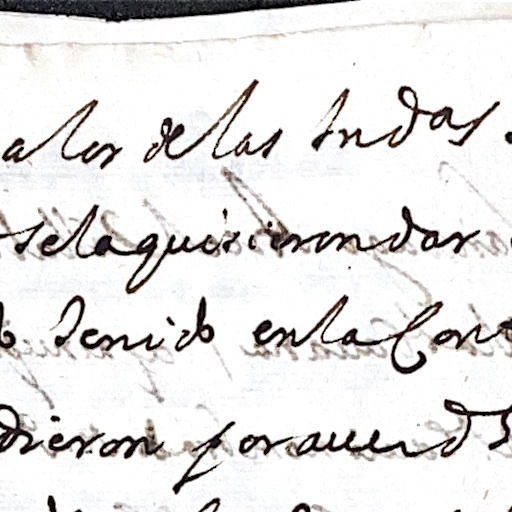 a los de las Indas
se la quisieron dar
tenido en la Con
dieron por auerd